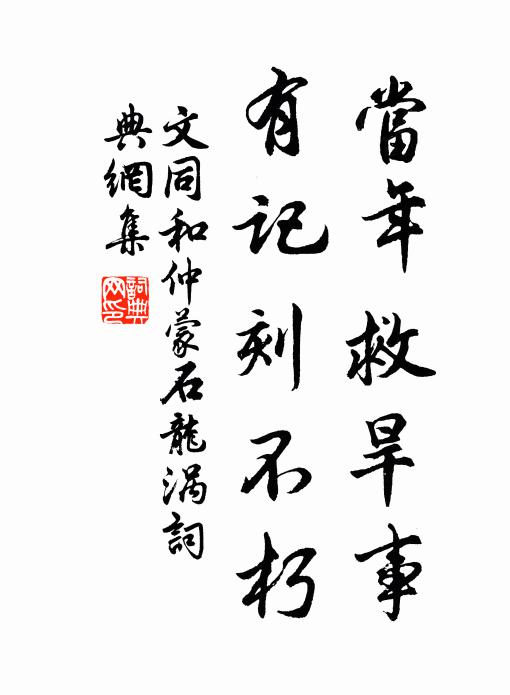 當年救旱事
有記刻不朽
文同和仲蒙石龍渦詞
典網集
詞典网印